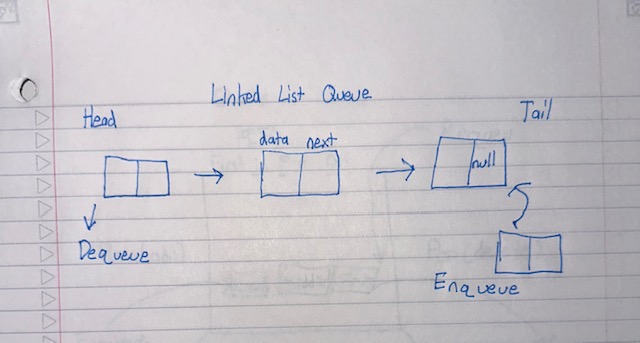 Linked List Queue
Head
Tail
data next
null
Dequeue
Enqueue